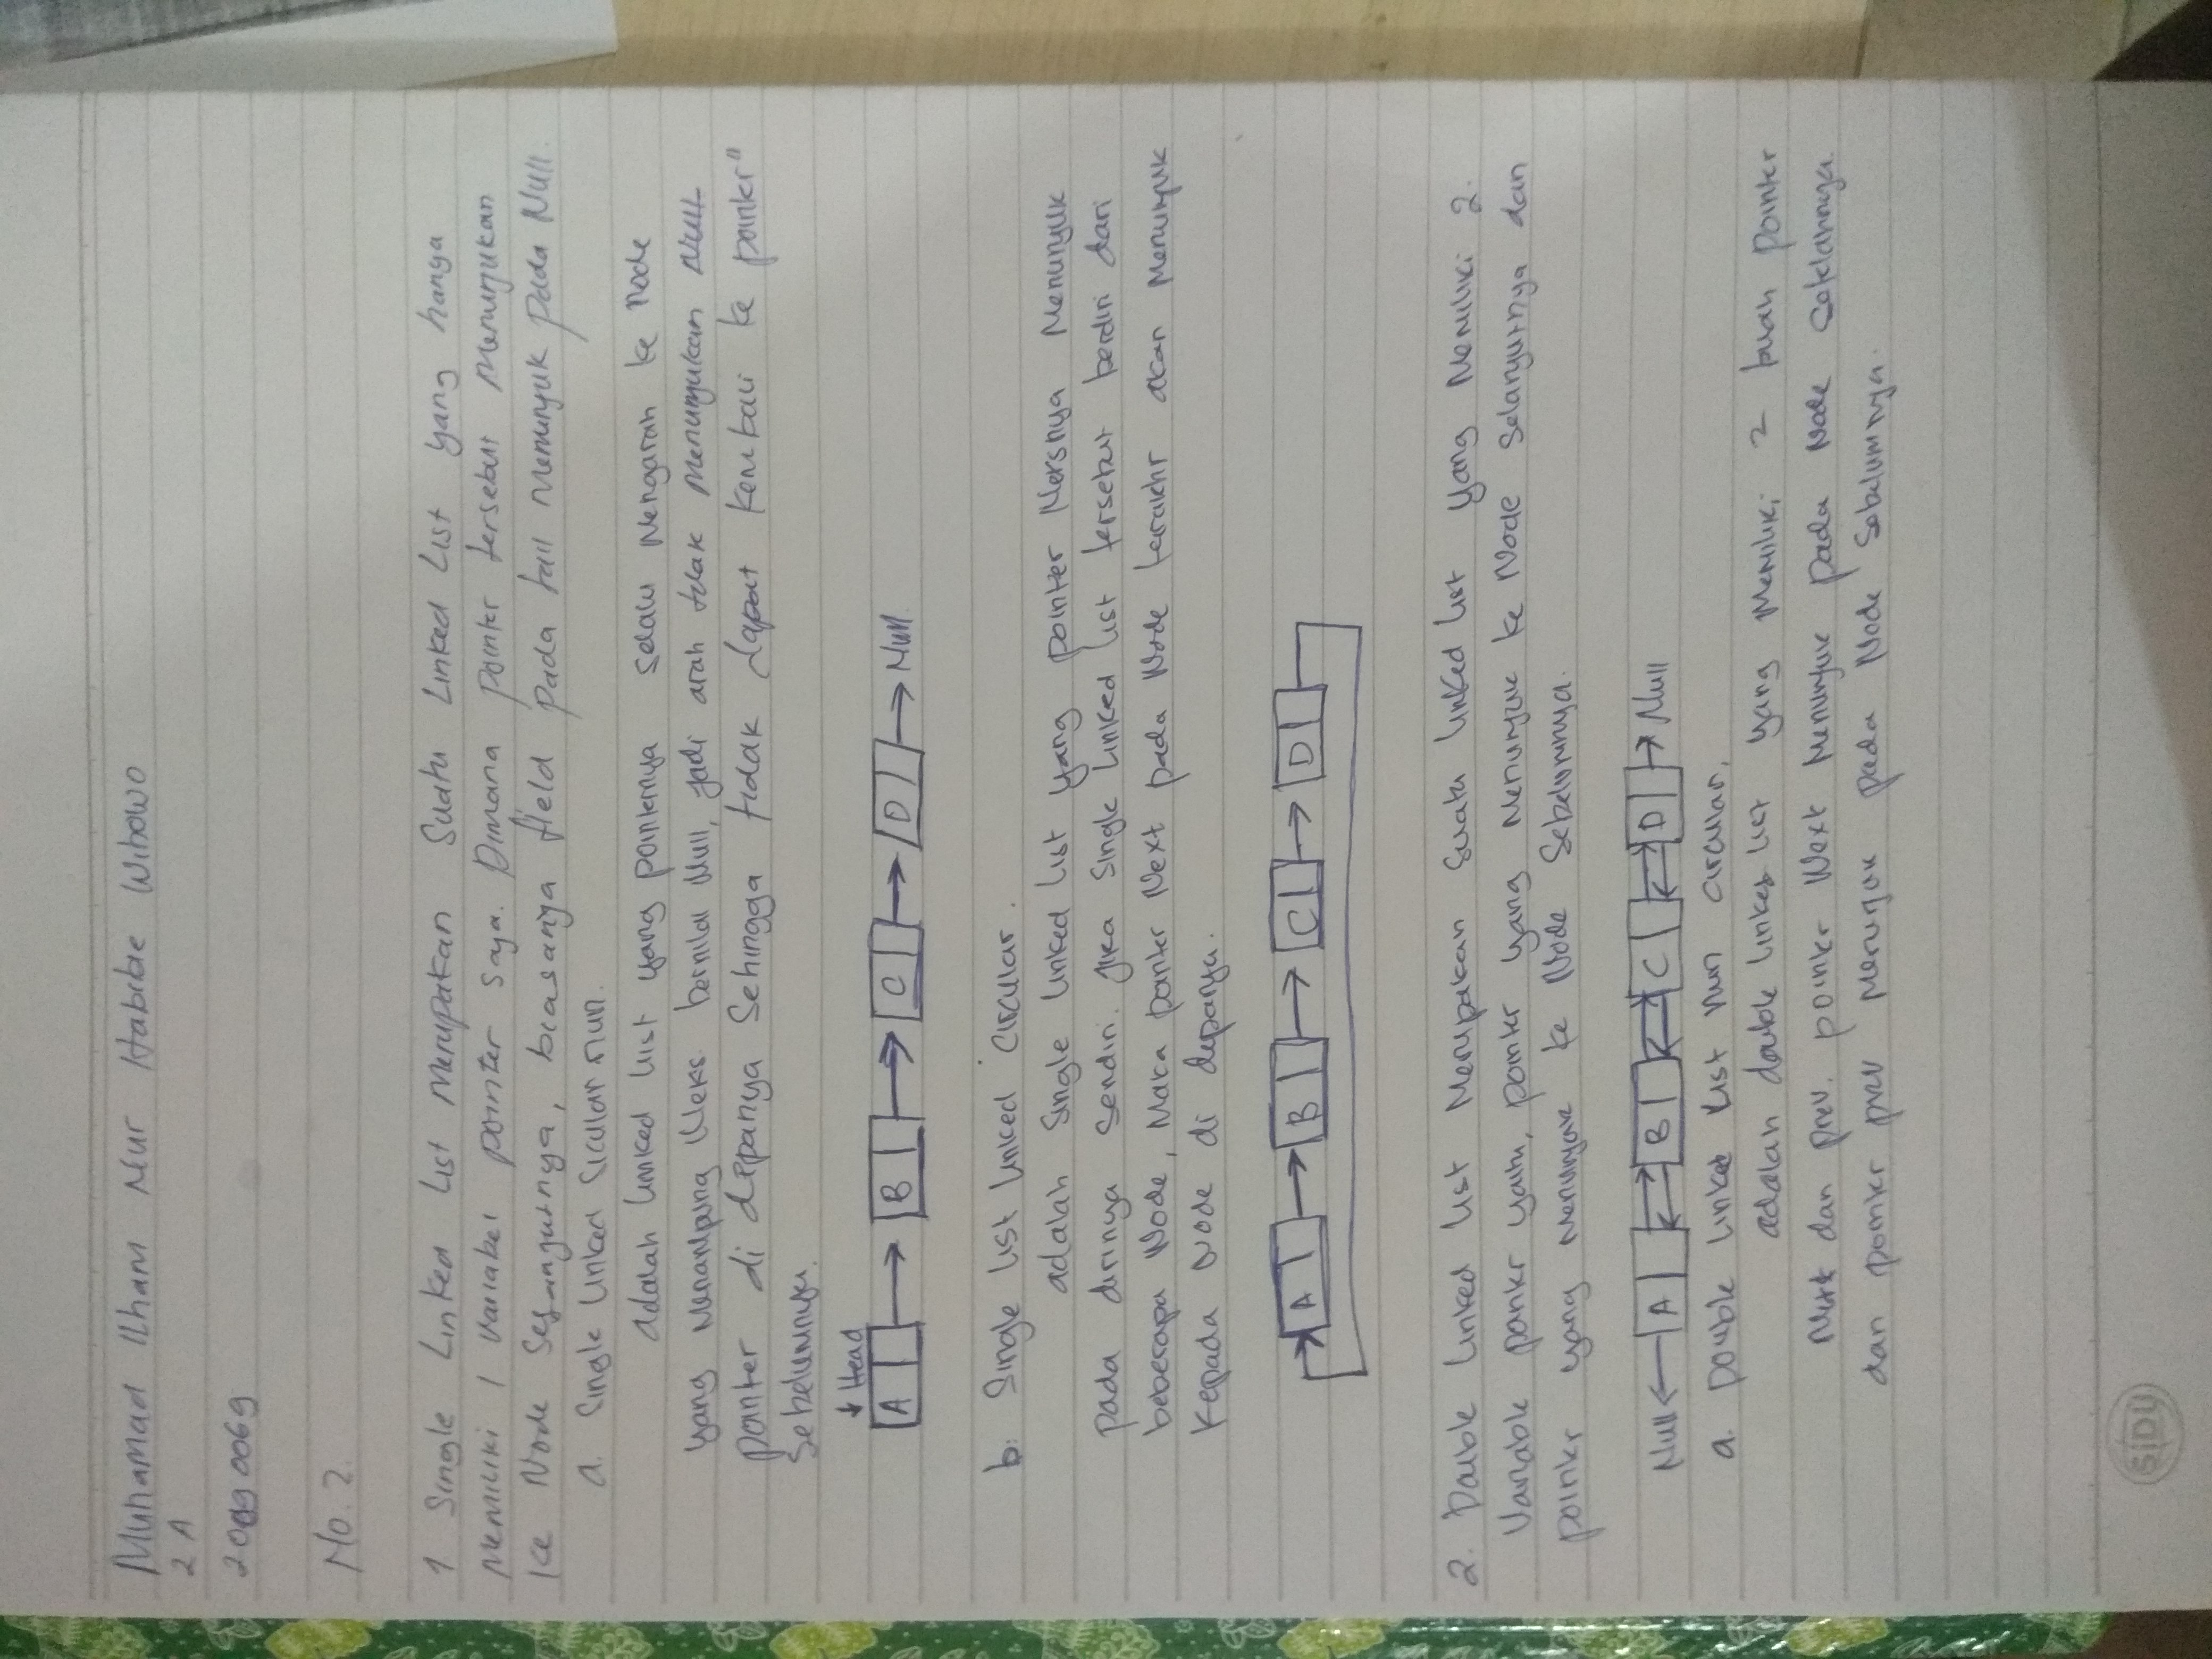 Muhamad Ilham Nur Habibie Wibowo
2 A
20090069
No. 2.
1 Single Linked List Merupakan Suatu Linked List yang hanya
Memiliki 1 Variabel pointer saja. Dimana pointer tersebut Menunjukan
Ke Node Selanjutnya, biasanya field pada tail menunjuk pada Null.
a. Single Linked Sicular nun.
adalah linked list yang pointernya selalu Mengarah ke Node
yang Menampung Neks. bernilai Null, jadi arah tidak Menunjukan Null
pointer di depanya Sehingga tidak dapat kembali ke pointer"
Sebelumnya.
↓ Head
A B C D → Null
b. Single List Linked Circular.
adalah Single Linked List yang pointer Neksnya Menunjuk
pada dirinya Sendiri. jika Single Linked List tersebut berdiri dari
beberapa Node, Maka pointer Next pada Node terakhr akan Menunjuk
Kepada Node di depanya.
A B C D
2. Double Linked List Merupakan Suatu Linked List yang Memiliki 2.
Variable pointer yaitu, pointer yang Menunjuk ke Node Selanjutnya dan
pointer yang Menunjuk ke Node Sebelumnya.
Null ← A B C D → Null
a. Double Linked List Nun Circular.
adalah double linked List yang Memiliki 2 buah pointer
Next dan prev. pointer Next Menunjuk pada Node Setelahnya
dan pointer prev Menunjuk pada Node Sebelumnya.
SIDU